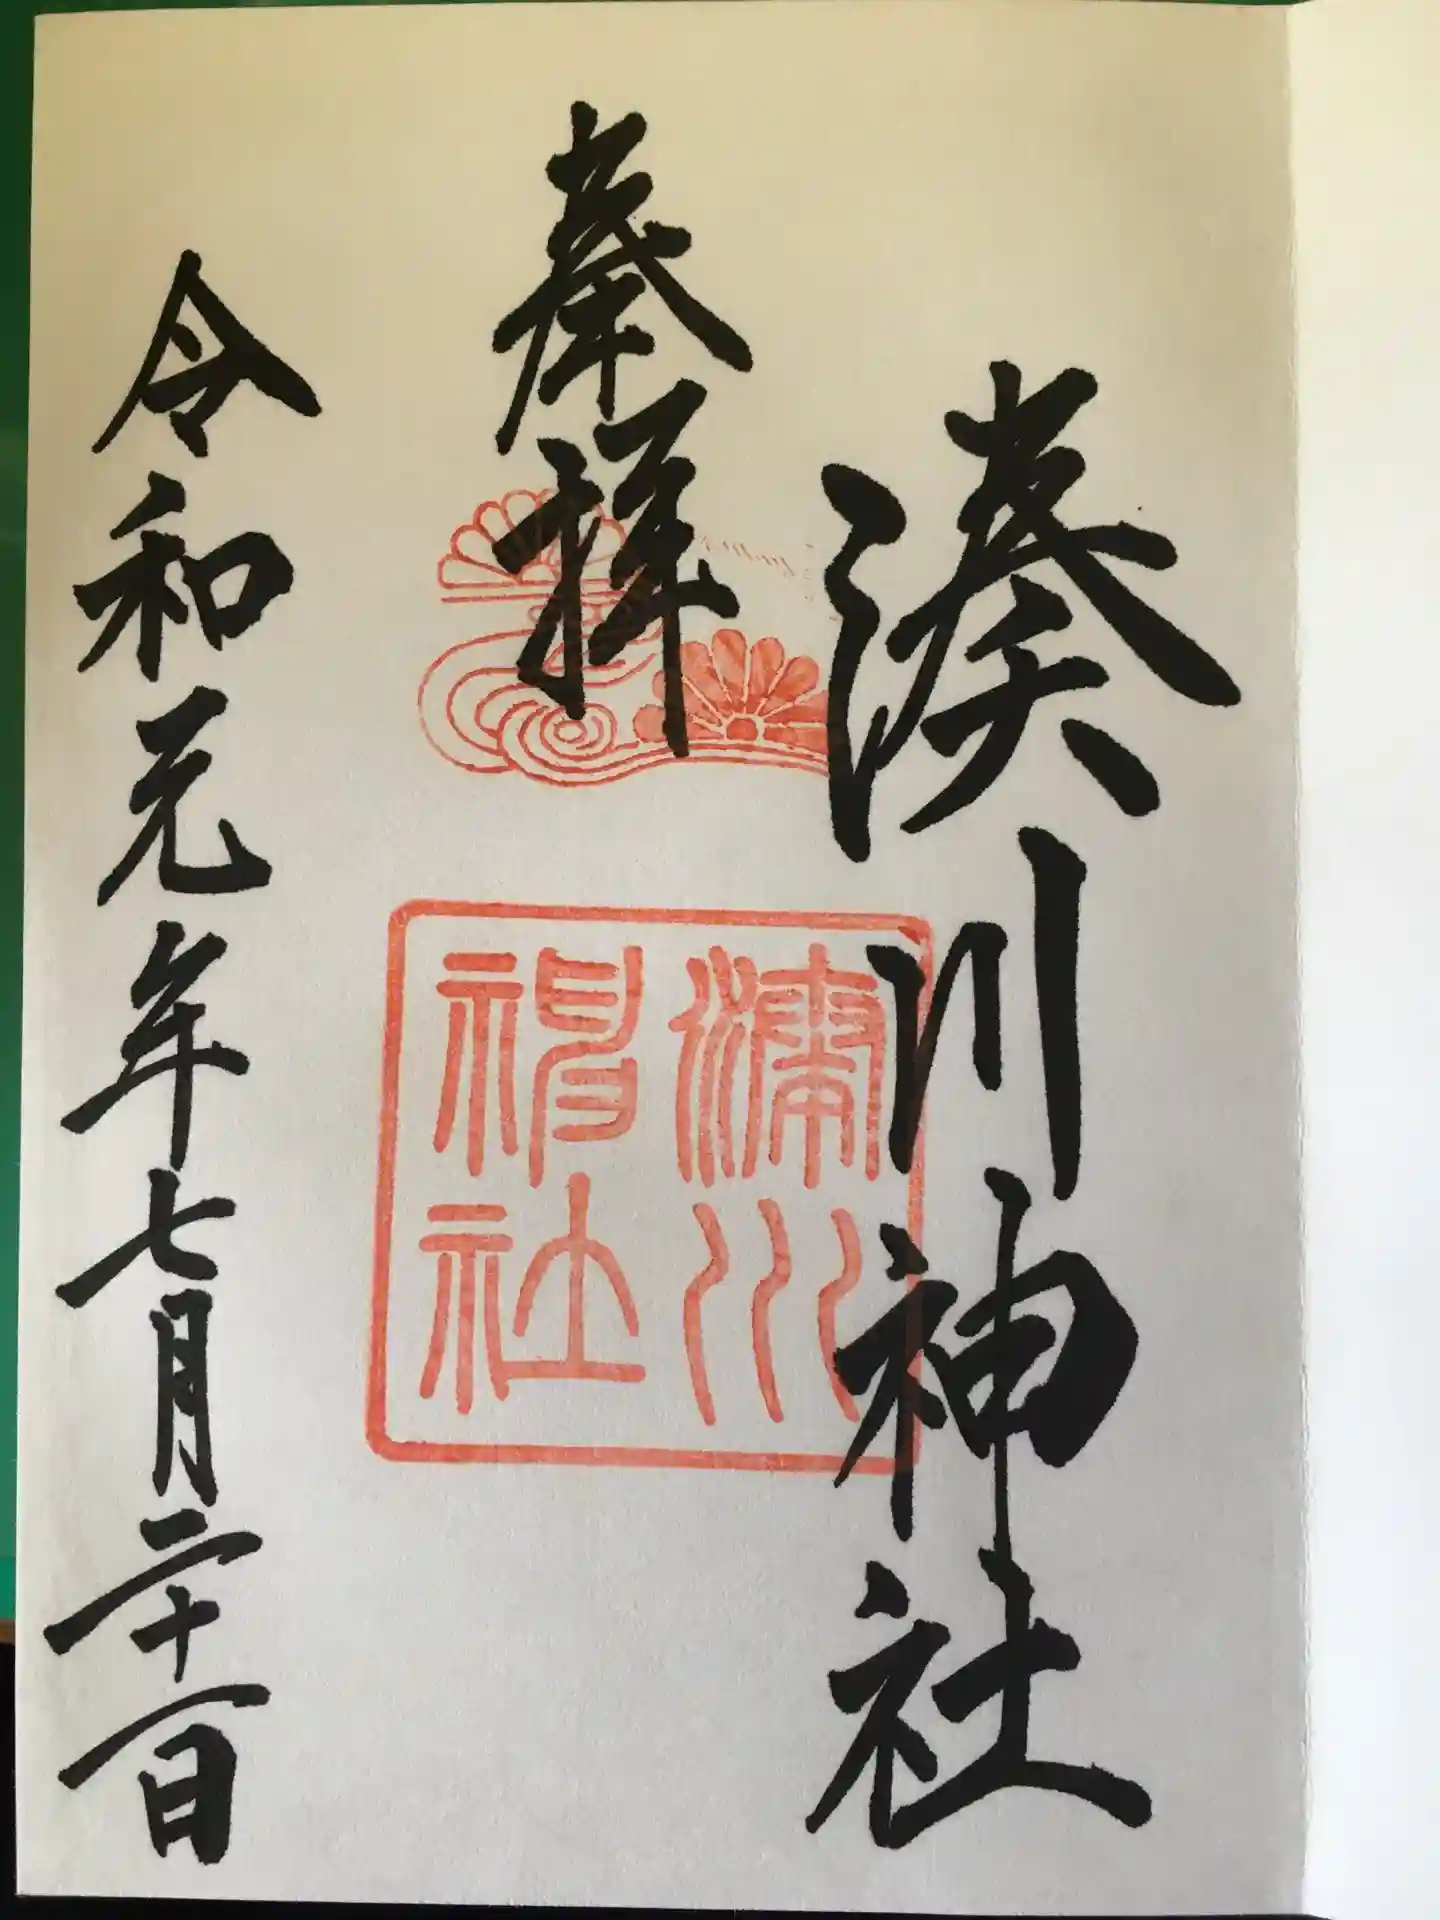 湊川神社
奉拝
湊川
神社
令和元年七月二十一日